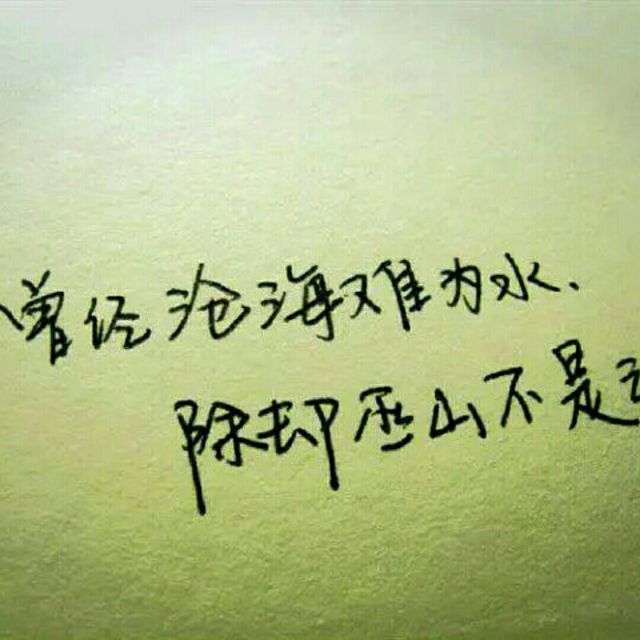 曾经沧海难为水.
除却巫山不是